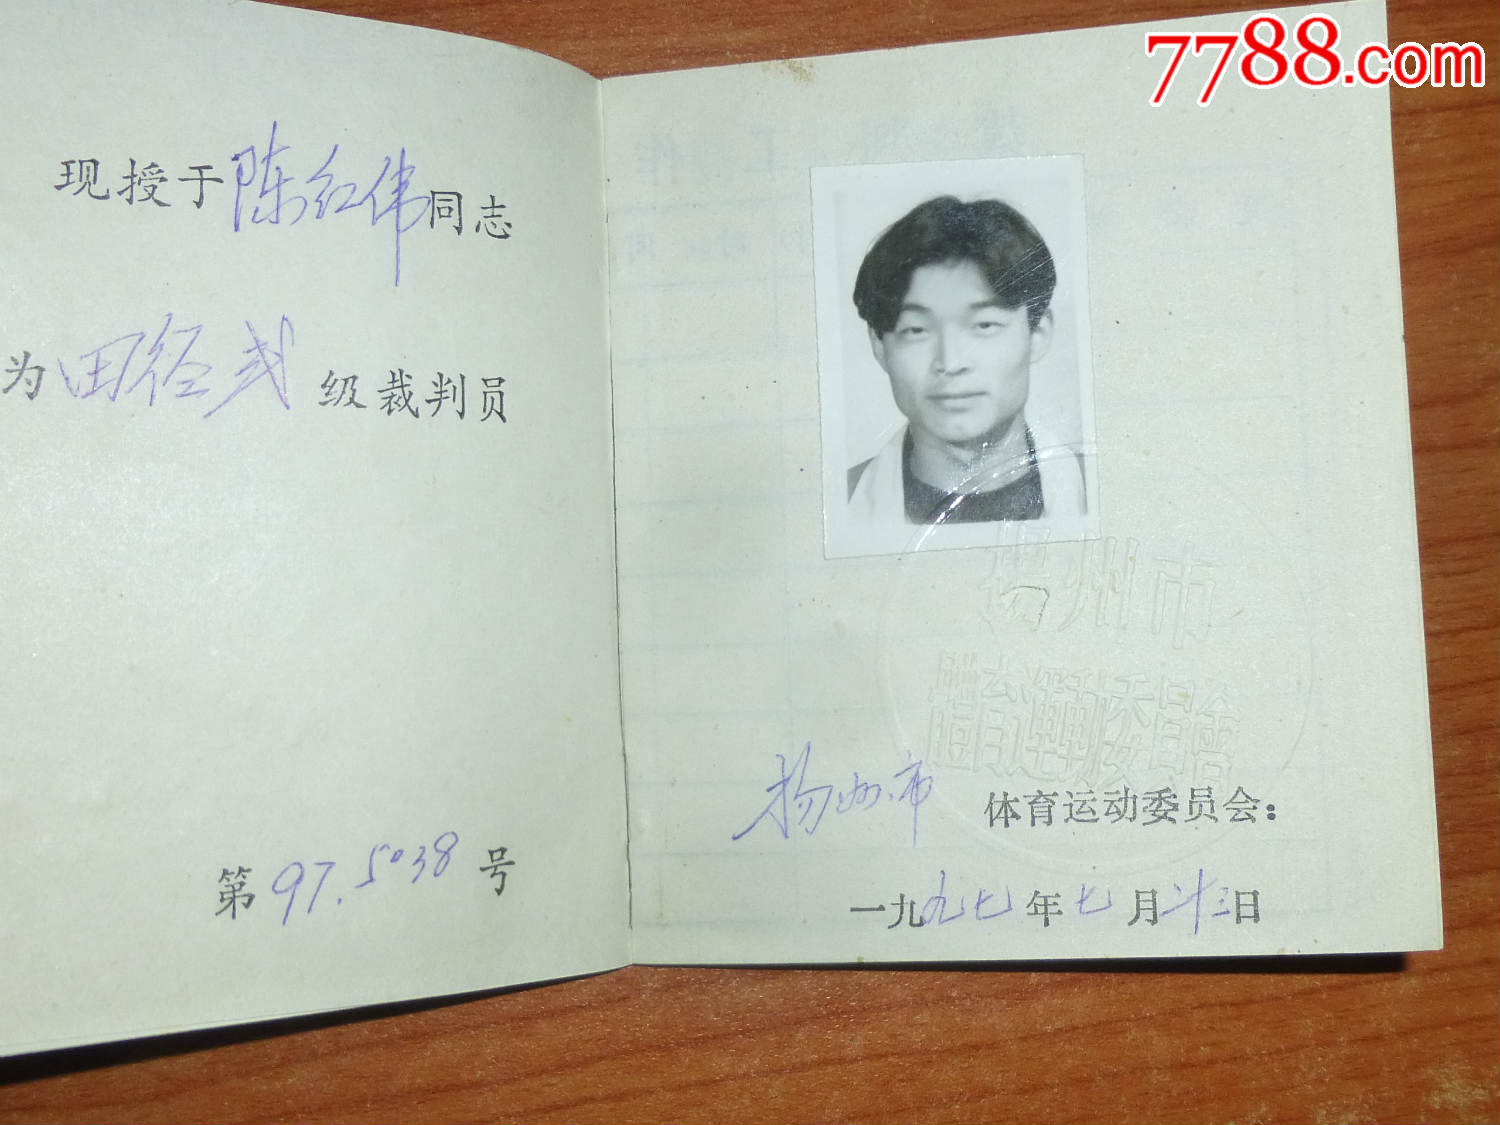 现授于陈红伟同志
为田径贰级裁判员
第97.5038号
7788.com
扬州市
體育運動委員會
扬州市体育运动委员会：
一九九七年七月廿三日